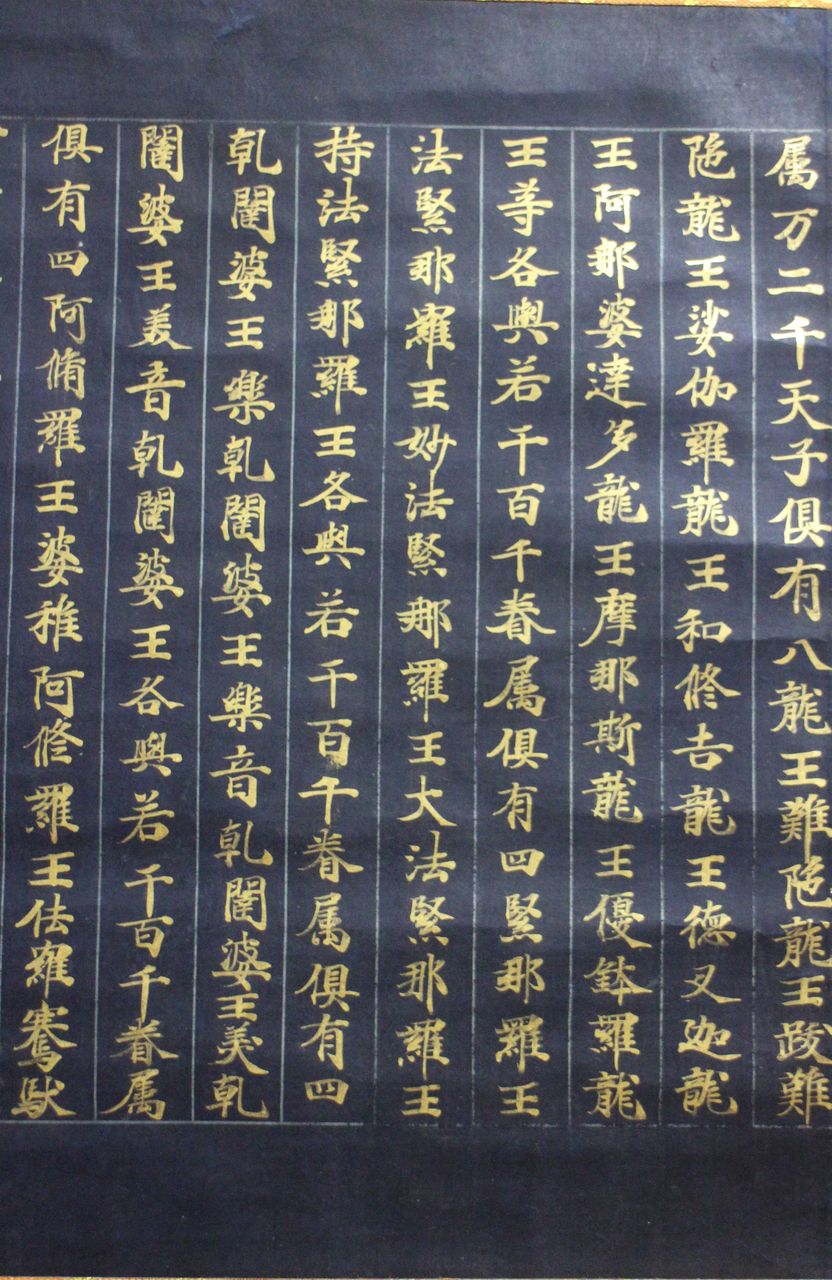 属万二千天子俱有八龍王難陁龍王跋難
陁龍王娑伽羅龍王和修吉龍王德叉迦龍
王阿那婆達多龍王摩那斯龍王優鉢羅龍
王等各與若千百千眷属俱有四緊那羅王
法緊那羅王妙法緊那羅王大法緊那羅王
持法緊那羅王各與若千百千眷属俱有四
乹闥婆王樂乹闥婆王樂音乹闥婆王美乹
闥婆王美音乹闥婆王各與若千百千眷属
俱有四阿脩羅王婆稚阿修羅王佉羅騫馱